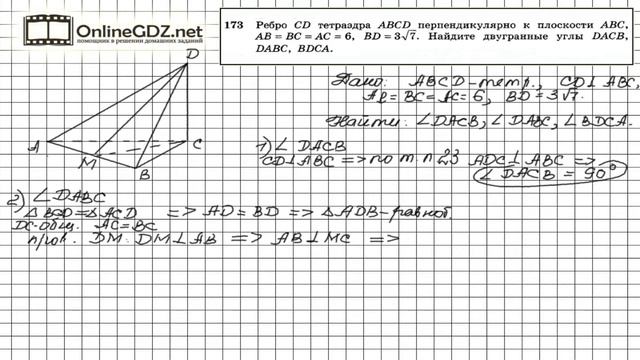 OnlineGDZ.net
помощник в решении домашних заданий
173 Ребро CD тетраэдра ABCD перпендикулярно к плоскости ABC,
AB = BC = AC = 6, BD = 3√7. Найдите двугранные углы DACB,
DABC, BDCA.
Дано: ABCD-тетр., CD⊥ABC,
AB=BC=AC=6, BD=3√7.
Найти: ∠DACB, ∠DABC, ∠BDCA.
D
A
C
M
B
1) ∠DACB
CD⊥ABC => по т. п 23 ADC⊥ABC =>
∠DACB = 90°
2) ∠DABC
△BCD=△ACD => AD=BD => △ADB-равноб.
DC-общ. AC=BC
пров. DM: DM⊥AB => AB⊥MC =>